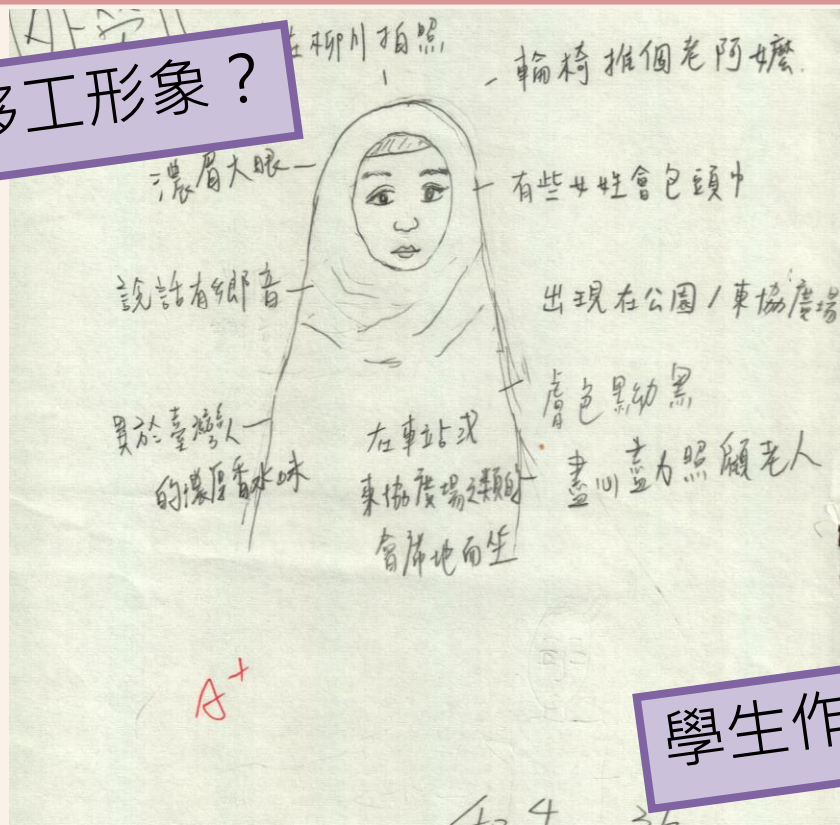 移工形象？
在柳川拍照
輪椅推個老阿嬤
濃眉大眼
有些女姓會包頭巾
說話有鄉音
出現在公園/東協廣場
膚色黑幼黑
異於臺灣人
的濃厚香水味
在車站或
東協廣場之類的
會席地而坐
盡心盡力照顧老人
A+
學生作